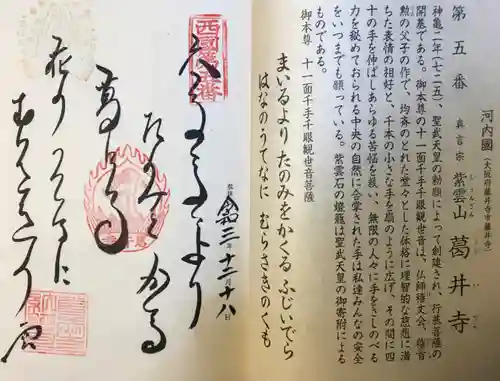 第五番
河内國(大阪府藤井寺市藤井寺)
真言宗 紫雲山 葛井寺
しうんざん
神亀二年(七二五)、聖武天皇の勅願によって創建され、行基菩薩の
開基である。御本尊の十一面千手千眼観世音は、仏師稽文会、稽首
勲の父子の作で、均斉のとれた堂々とした体格に理智的な慈悲に満
ちた表情の相好と、千本の小さな手を扇のように広げ、その間に四
十の手を伸ばしあらゆる苦悩を救い、無限の人々に手をさしのべる
力を秘めておられる中央の自然に合掌された手は私達みんなの安全
をいつまでも願っている。紫雲石の燈籠は聖武天皇の御寄附による
ものである。
御本尊 十一面千手千眼観世音菩薩
まいるより たのみをかくる ふじいでら
はなのうてなに むらさきのくも
西國第五番
令和三年十二月十八日